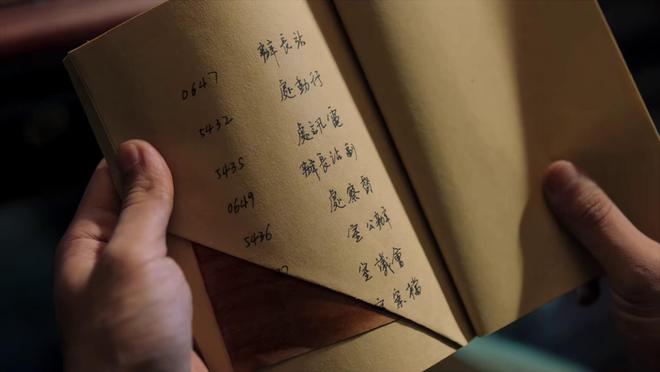 站長辦 0647
行動處 5432
電訊處 5435
副站長辦 0649
督察處 5436
辦公室
會議室
檔案室